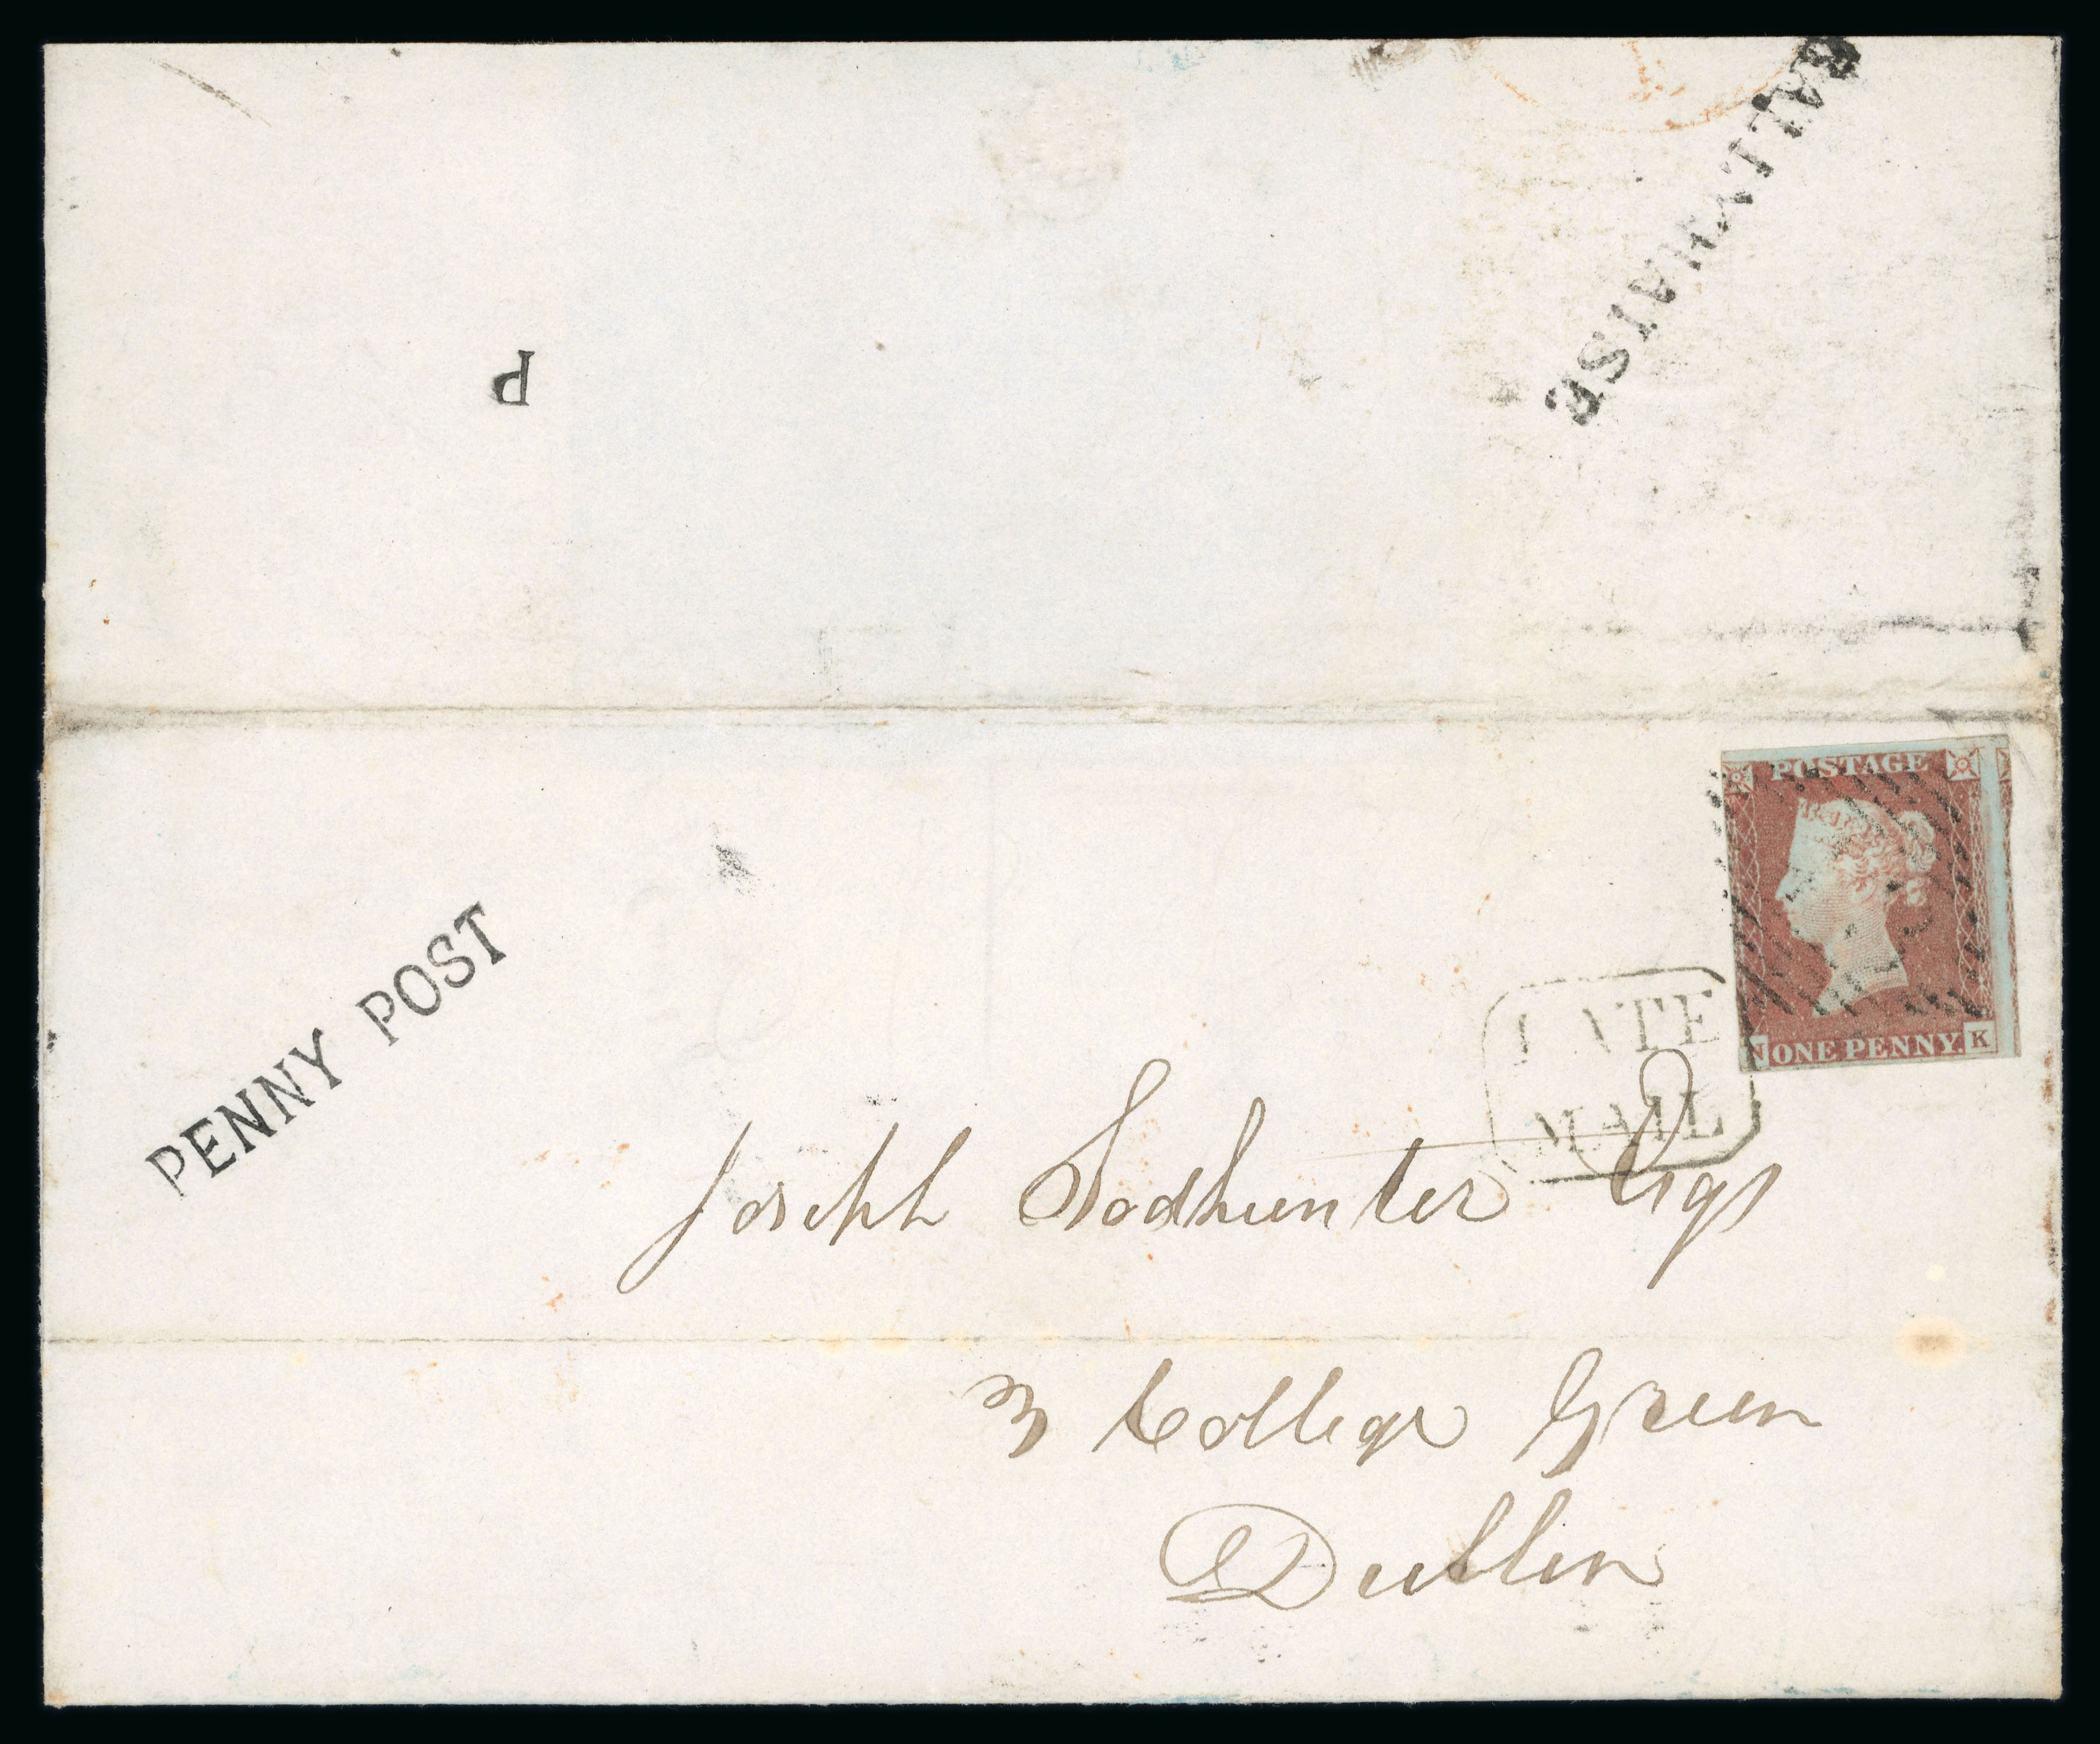 BALLYHAISE
P
POSTAGE
N ONE PENNY. K
PENNY POST
LATE
MAIL
Joseph Todhunter Esqr
3 College Green
Dublin